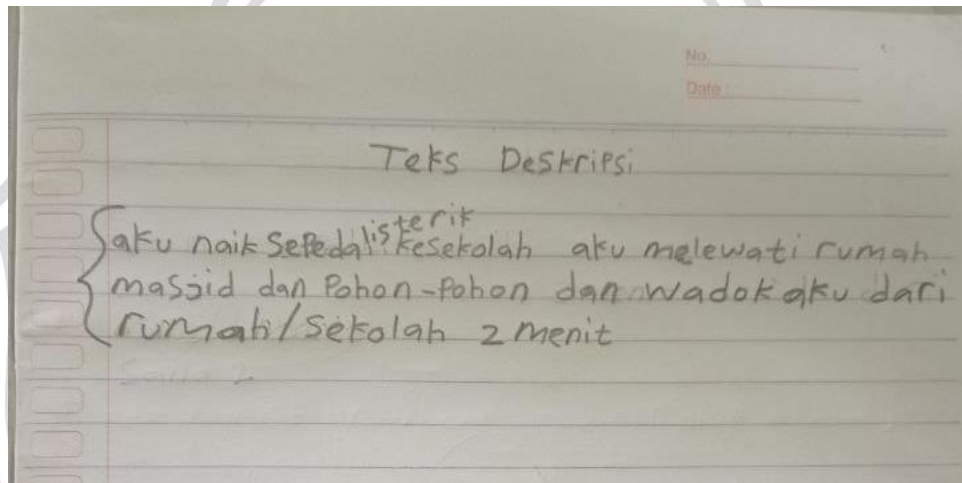 No.
Date :
Teks Deskripsi
aku naik sepeda listerik kesekolah aku melewati rumah
masjid dan Pohon-Pohon dan wadok aku dari
rumah/sekolah 2 menit